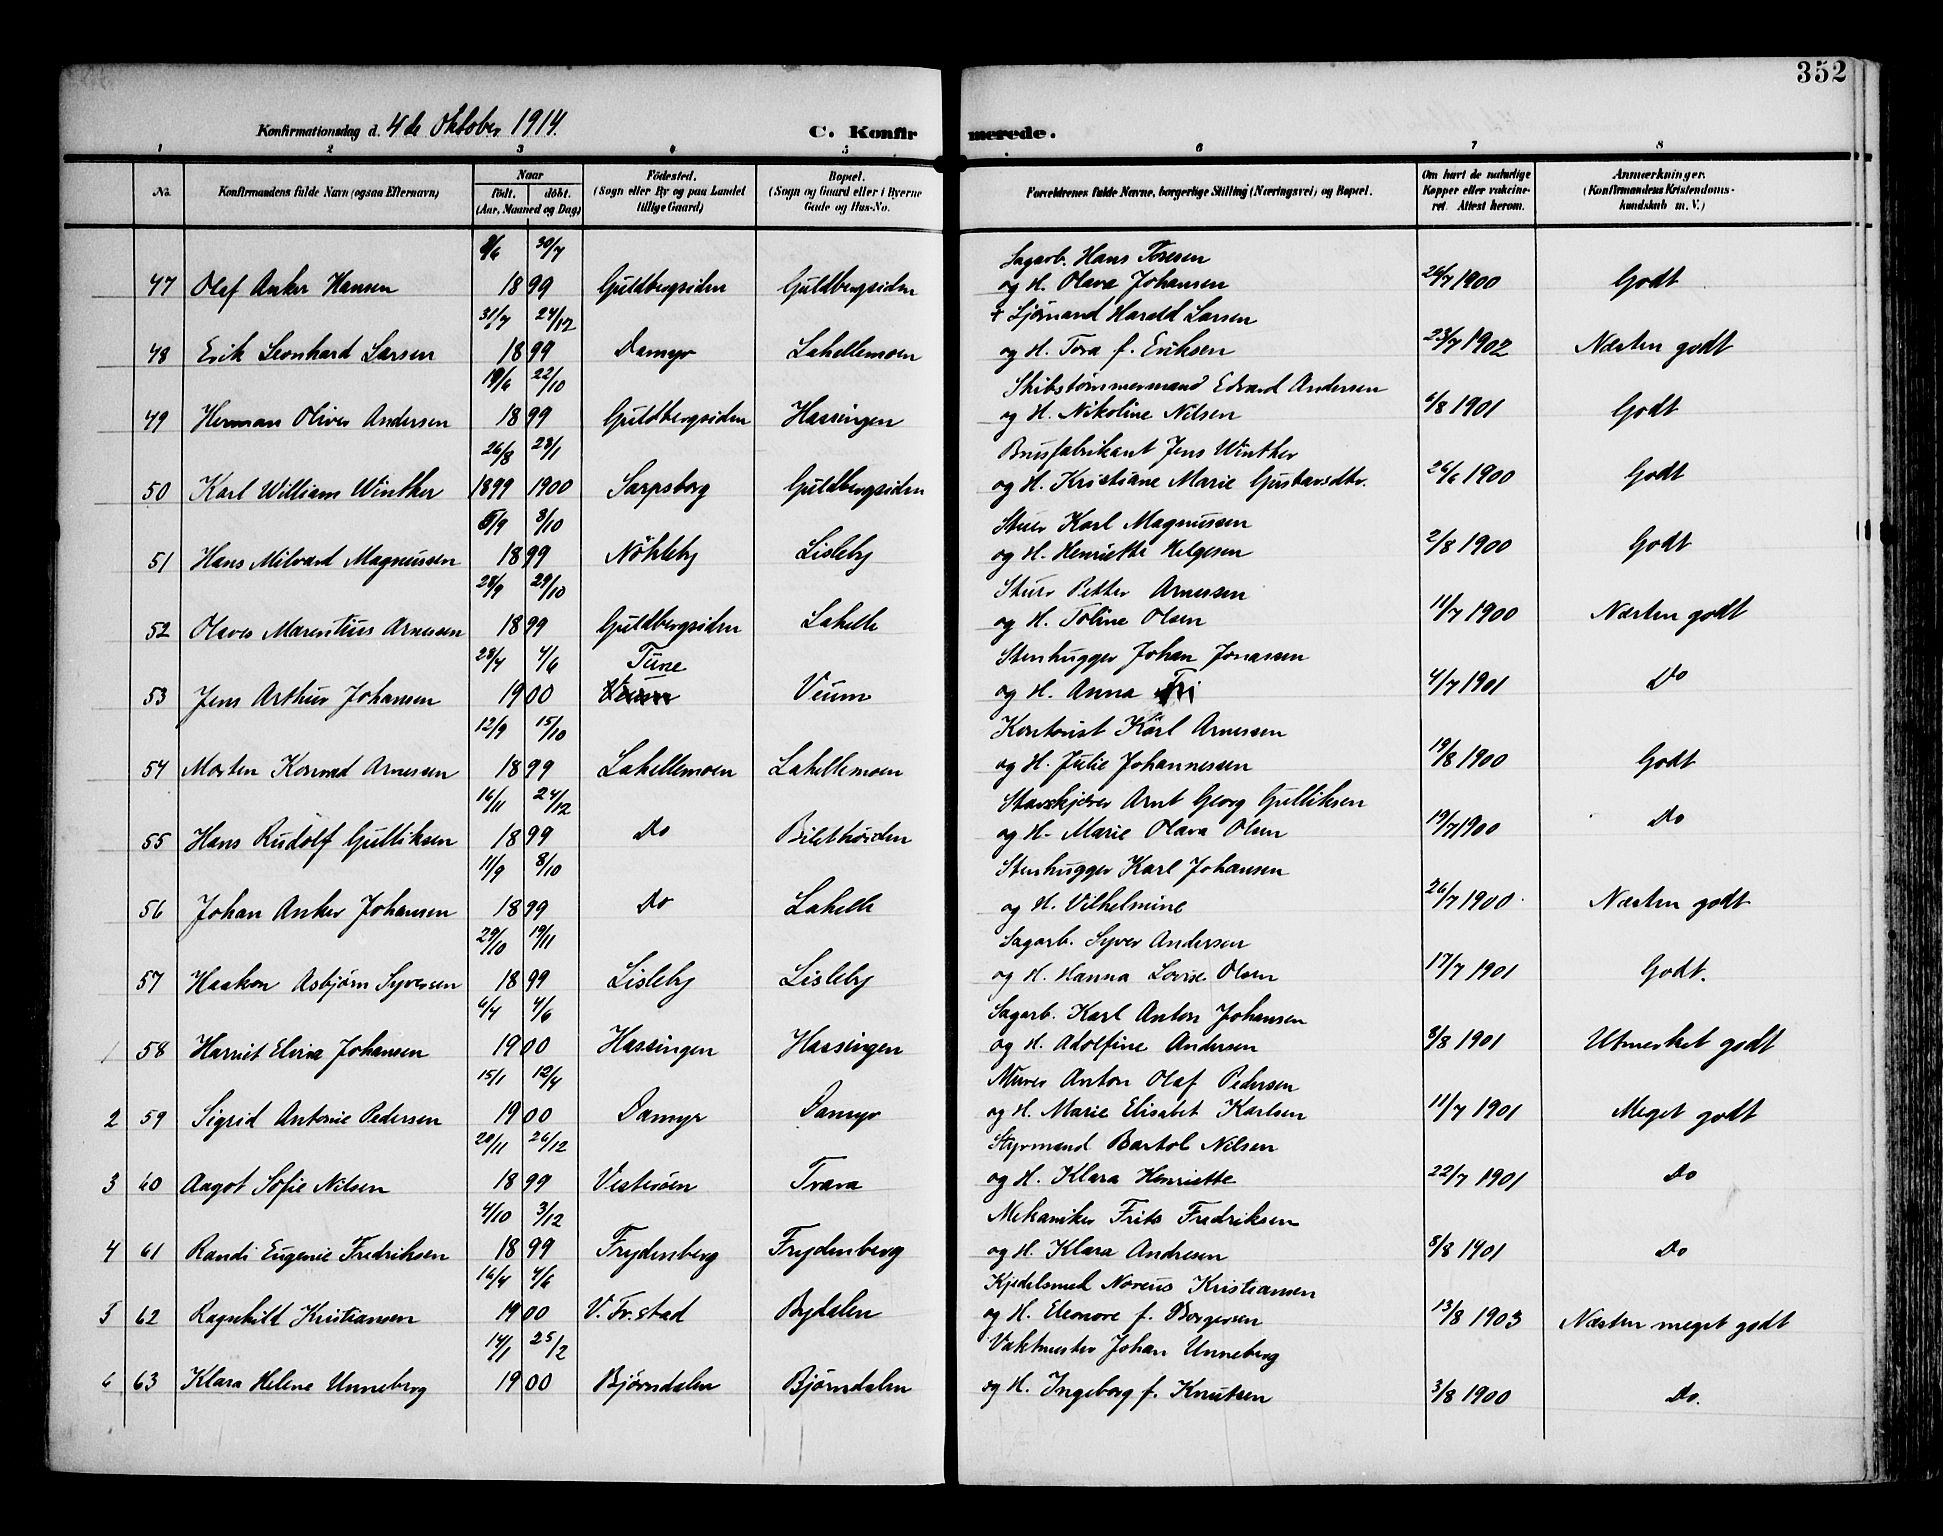 352
Konfirmationsdag d. 4de Oktober 1914. C. Konfirmerede.
1 2 3 4 5 6 7 8
No. Konfirmandens fulde Navn (ogsaa Efternavn) Naar født. døbt. (Aar, Maaned og Dag) Fødested. (Sogn eller By og paa Landet tillige Gaard) Bopæl. (Sogn og Gaard eller i Byerne Gade og Hus-No. Forældrenes fulde Navne, borgerlige Stilling (Næringsvei) og Bopæl. Om havt de naturlige Kopper eller vakcineret. Attest herom. Anmærkninger. (Konfirmandens Kristendomskundskab m. V.)
8/6 30/7 Sagarb. Hans Toresen
47 Olaf Anker Hansen 1899 Guldbergsiden Guldbergsiden og H. Olava Johansen 26/7 1900 Godt
31/7 24/12 Sjømand Harald Larsen
48 Erik Leonhard Larsen 1899 Damyr Lahellemoen og H. Tora f. Eriksen 23/7 1902 Næsten godt
19/6 22/10 Skibstømmermand Edvard Andersen
49 Herman Oliver Andersen 1899 Guldbergsiden Hassingen og H. Nikoline Nilsen 6/8 1901 Godt
26/8 28/1 Brusfabrikant Jens Winther
50 Karl William Winther 1899 1900 Sarpsborg Guldbergsiden og H. Kristiane Marie Gustavsdtr. 26/6 1900 Godt
5/9 8/10 Stuer Karl Magnussen
51 Hans Milvard Magnussen 1899 Nöhleby Lisleby og H. Henriette Helgesen 2/8 1900 Godt
28/9 29/10 Stuer Petter Arnessen
52 Olaves Marentius Arnessen 1899 Guldbergsiden Lahelle og H. Toline Olsen 11/7 1900 Næsten godt
28/4 4/6 Tune Stenhugger Johan Jonassen
53 Jens Arthur Johansen 1900 Veum Veum og H. Anna 4/7 1901 Do
12/9 15/10 Kontorist Karl Arnessen
54 Morten Konrad Arnessen 1899 Lahellemoen Lahellemoen og H. Julie Johannessen 19/8 1900 Godt
16/11 24/12 Stavskjærer Arnt Georg Gulliksen
55 Hans Rudolf Gulliksen 1899 Do og H. Marie Olava Olsen 19/7 1900 Do
11/9 8/10 Stenhugger Karl Johansen
56 Johan Anker Johansen 1899 Do Lahelle og H. Vilhelmine 26/7 1900 Næsten godt
29/10 19/11 Sagarb. Syver Andersen
57 Haakon Asbjørn Syversen 1899 Lisleby Lisleby og H. Hanna Lovise Olsen 17/7 1901 Godt.
6/4 4/6 Sagarb. Karl Anton Johansen
1 58 Harriet Elvira Johansen 1900 Hassingen Hassingen og H. Adolfine Andersen 8/8 1901 Utmerket godt
15/1 12/4 Murer Anton Olaf Pedersen
2 59 Sigrid Antonie Pedersen 1900 Damyr Damyr og H. Marie Elisabet Karlsen 11/7 1901 Meget godt
28/11 26/12 Styrmand Bartol Nilsen
3 60 Aagot Sofie Nilsen 1899 Vesterøen Trara og H. Klara Henriette 22/7 1901 Do
4/10 3/12 Mekaniker Frits Fredriksen
4 61 Randi Eugenie Fredriksen 1899 Frydenberg Frydenberg og H. Klara Andresen 8/8 1901 Do
16/4 4/6 Kjedelsmed Noreus Kristiansen
5 62 Ragnhild Kristiansen 1900 V. Fr.stad Bydalen og H. Eleonore f. Borgersen 13/8 1903 Næsten meget godt
14/1 25/2 Vaktmester Johan Unneberg
6 63 Klara Helene Unneberg 1900 Bjørndalen Bjørndalen og H. Ingeborg f. Knutsen 3/8 1900 Do.